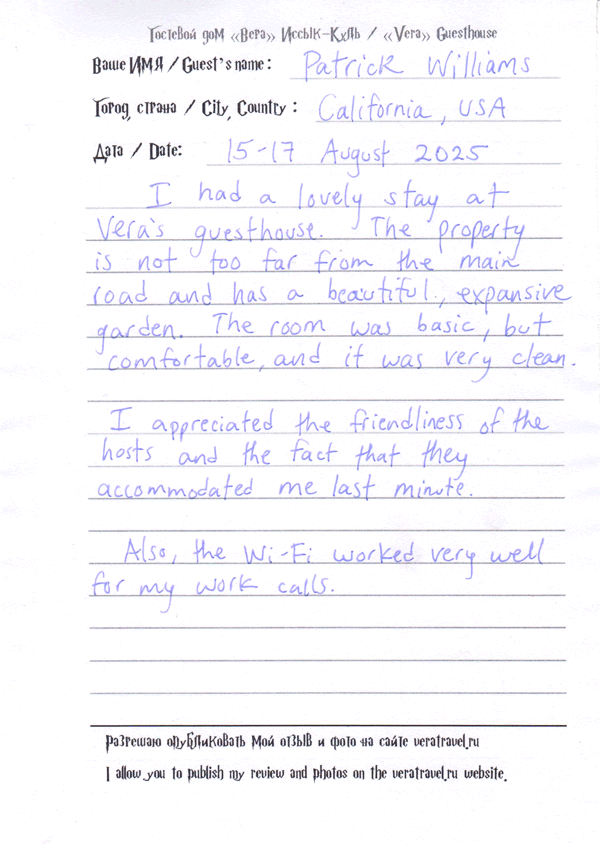 Гостевой дом «Вера» Иссык-Куль / «Vera» Guesthouse
Ваше ИМЯ / Guest's name: Patrick Williams
Город, страна / City, Country: California, USA
Дата / Date: 15-17 August 2025
I had a lovely stay at
Vera's guesthouse. The property
is not too far from the main
road and has a beautiful, expansive
garden. The room was basic, but
comfortable, and it was very clean.
I appreciated the friendliness of the
hosts and the fact that they
accommodated me last minute.
Also, the Wi-Fi worked very well
for my work calls.
Разрешаю опубликовать мой отзыв и фото на сайте veratravel.ru
I allow you to publish my review and photos on the veratravel.ru website.